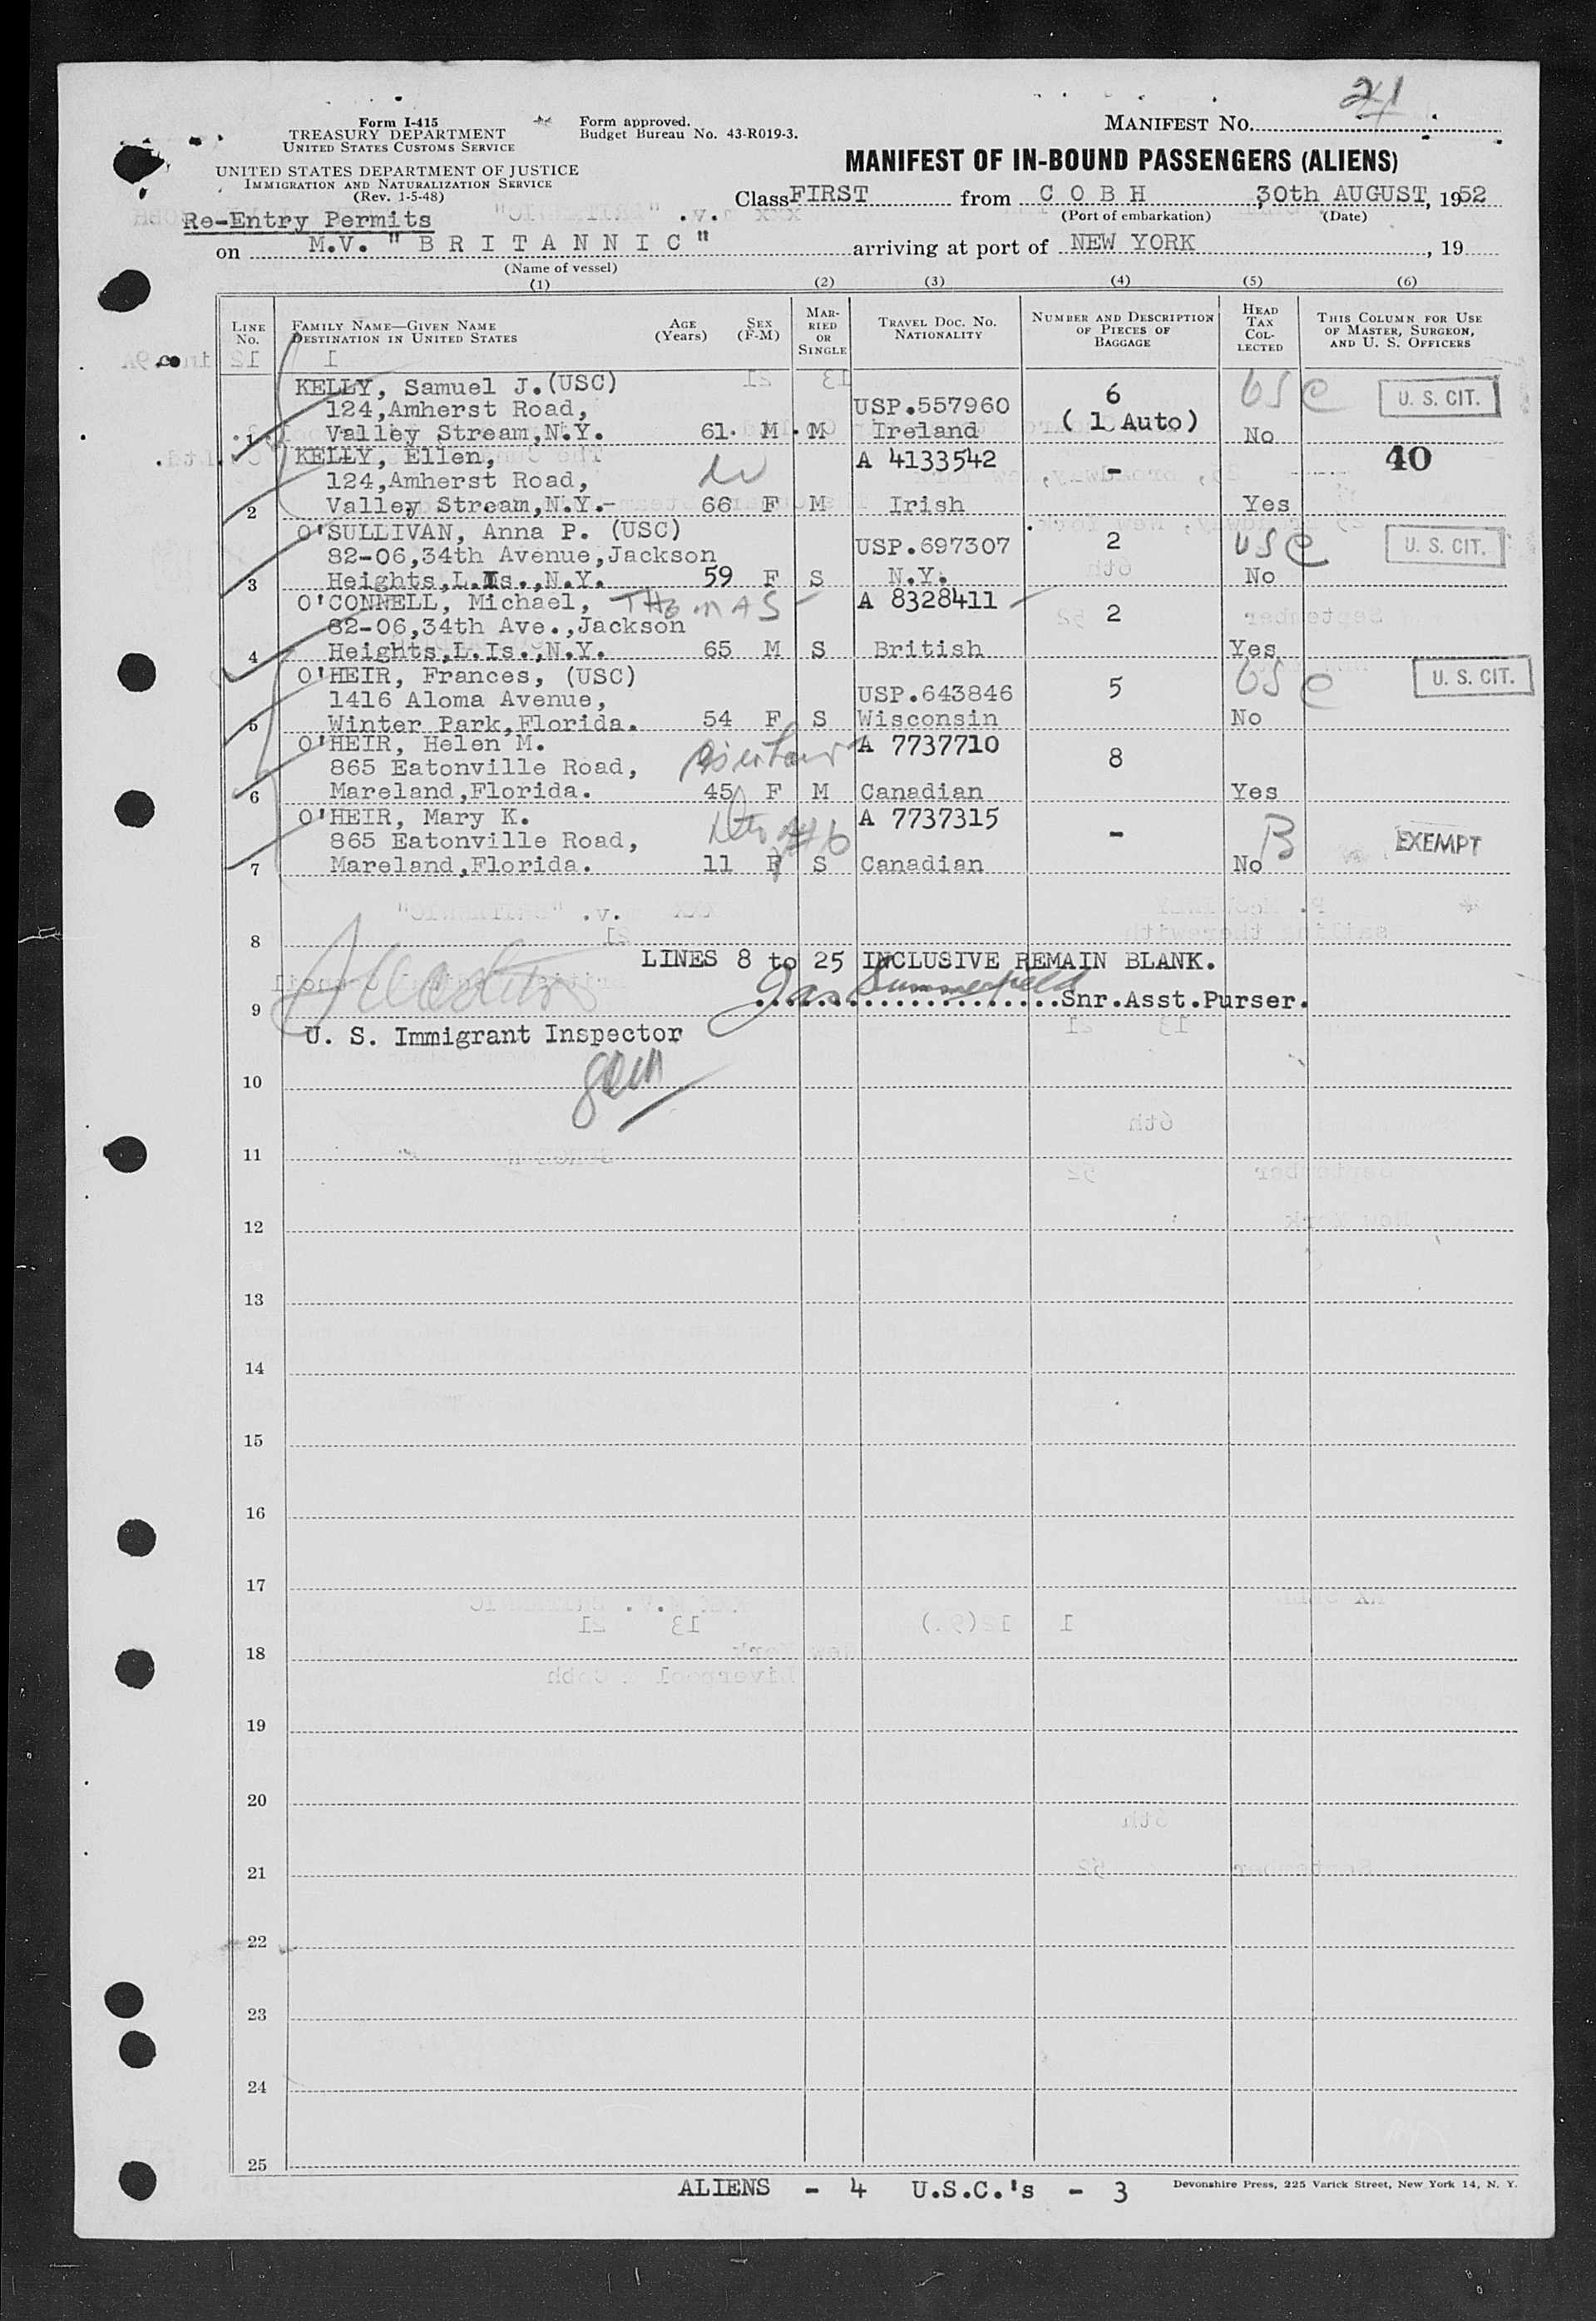 21
Form I-415
TREASURY DEPARTMENT
UNITED STATES CUSTOMS SERVICE
Form approved.
Budget Bureau No. 43-R019-3.
MANIFEST NO.
UNITED STATES DEPARTMENT OF JUSTICE
IMMIGRATION AND NATURALIZATION SERVICE
(Rev. 1-5-48)
MANIFEST OF IN-BOUND PASSENGERS (ALIENS)
Class FIRST from C O B H 30th AUGUST, 1952
(Port of embarkation) (Date)
Re-Entry Permits
on M.V. "B R I T A N N I C" arriving at port of NEW YORK, 19
(Name of vessel)
(1) (2) (3) (4) (5) (6)
LINE No. FAMILY NAME—GIVEN NAME DESTINATION IN UNITED STATES AGE (Years) SEX (F-M) MARRIED OR SINGLE TRAVEL DOC. NO. NATIONALITY NUMBER AND DESCRIPTION OF PIECES OF BAGGAGE HEAD TAX COLLECTED THIS COLUMN FOR USE OF MASTER, SURGEON, AND U. S. OFFICERS
KELLY, Samuel J.(USC) 6 USC U. S. CIT.
124,Amherst Road, USP.557960 ( 1 Auto)
1 Valley Stream,N.Y. 61. M. M Ireland No
KELLY, Ellen, A 4133542 40
124,Amherst Road, -
2 Valley Stream,N.Y.- 66 F M Irish Yes
O'SULLIVAN, Anna P. (USC) USC U. S. CIT.
82-06,34th Avenue,Jackson USP.697307 2
3 Heights,L.Is.,N.Y. 59 F S N.Y. No
O'CONNELL, Michael, THOMAS A 8328411
82-06,34th Ave.,Jackson 2
4 Heights,L.Is.,N.Y. 65 M S British Yes
O'HEIR, Frances, (USC) USC U. S. CIT.
1416 Aloma Avenue, USP.643846 5
5 Winter Park,Florida. 54 F S Wisconsin No
O'HEIR, Helen M. A 7737710
865 Eatonville Road, 8
6 Mareland,Florida. 45 F M Canadian Yes
O'HEIR, Mary K. A 7737315 B
865 Eatonville Road, - EXEMPT
7 Mareland,Florida. 11 F S Canadian No
8
LINES 8 to 25 INCLUSIVE REMAIN BLANK.
9 Jas Summerfield Snr.Asst.Purser.
U. S. Immigrant Inspector
10
11
12
13
14
15
16
17
18
19
20
21
22
23
24
25
ALIENS - 4 U.S.C.'s - 3
Devonshire Press, 225 Varick Street, New York 14, N. Y.